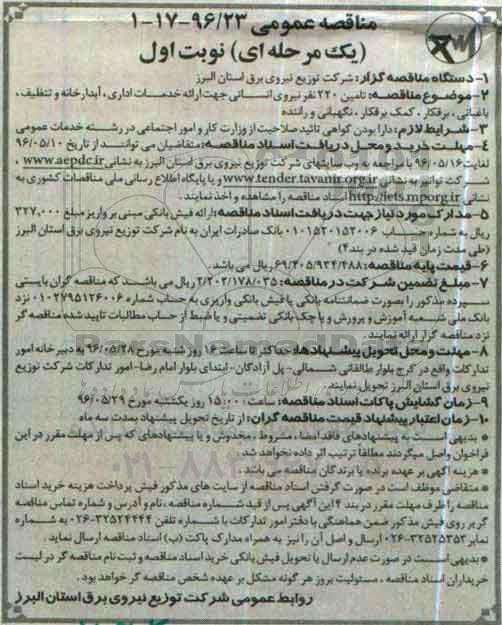 مناقصه عمومی ۹۶/۲۳-۱۷-۱
(یک مرحله ای) نوبت اول
۱- دستگاه مناقصه گزار: شرکت توزیع نیروی برق استان البرز
۲- موضوع مناقصه: تامین ۲۲۰ نفر نیروی انسانی جهت ارائه خدمات اداری، آبدارخانه و تنظیف،
باغبانی، برقکار، کمک برقکار، نگهبانی و راننده
۳- شرایط لازم: دارا بودن گواهی تائید صلاحیت از وزارت کار و امور اجتماعی در رشته خدمات عمومی
۴- مهلت خرید و محل دریافت اسناد مناقصه: متقاضیان می توانند از تاریخ ۹۶/۰۵/۱۰
لغایت ۹۶/۰۵/۱۶ با مراجعه به وب سایتهای شرکت توزیع نیروی برق استان البرز به نشانی www.aepdc.ir ،
شرکت توانیر به نشانی www.tender.tavanir.org.ir و یا پایگاه اطلاع رسانی ملی مناقصات کشوری به
نشانی http://iets.mporg.ir اسناد مناقصه را مشاهده و اخذ نمایند.
۵- مدارک مورد نیاز جهت دریافت اسناد مناقصه: ارائه فیش بانکی مبنی بر واریز مبلغ ۳۲۷,۰۰۰
ریال به شماره حساب ۰۱۰۱۵۲۰۱۵۲۰۰۶ بانک صادرات ایران به نام شرکت توزیع نیروی برق استان البرز
(طی مدت زمان قید شده در بند ۴)
۶- قیمت پایه مناقصه: ۶۹/۴۰۵/۹۳۴/۴۸۸ ریال می باشد.
۷- مبلغ تضمین شرکت در مناقصه: ۲/۲۰۲/۱۷۸/۰۳۵ ریال می باشد که مناقصه گران بایستی
سپرده مذکور را بصورت ضمانتنامه بانکی یا فیش بانکی واریزی به حساب شماره ۰۱۰۲۷۹۵۱۲۶۰۰۶ نزد
بانک ملی شعبه آموزش و پرورش و یا چک بانکی تضمینی و یا ضبط از حساب مطالبات تایید شده مناقصه گر
نزد مناقصه گزار ارائه نمایند.
۸- مهلت و محل تحویل پیشنهادها: حداکثر تا ساعت ۱۶ روز شنبه مورخ ۹۶/۰۵/۲۸ به دبیرخانه امور
تدارکات واقع در کرج بلوار طالقانی شمالی- پل آزادگان- ابتدای بلوار امام رضا- امور تدارکات شرکت توزیع
نیروی برق استان البرز تحویل نمایند.
۹- زمان گشایش پاکات اسناد مناقصه: ساعت ۱۵:۰۰ روز یکشنبه مورخ ۹۶/۰۵/۲۹
۱۰- زمان اعتبار پیشنهاد قیمت مناقصه گران: از تاریخ تحویل پیشنهاد بمدت سه ماه
* بدیهی است به پیشنهادهای فاقد امضاء، مشروط، مخدوش و یا پیشنهادهای که پس از مهلت مقرر در این
فراخوان واصل میگردند مطلقا ترتیب اثر داده نخواهد شد.
* هزینه آگهی بر عهده برنده یا برندگان مناقصه می باشد.
* متقاضی موظف است در صورت گرفتن اسناد مناقصه از سایت های مذکور فیش پرداخت هزینه خرید اسناد
مناقصه را ظرف مهلت مقرر در بند ۴ این آگهی پس از قید شماره مناقصه، نام و آدرس و شماره تماس مناقصه
گر بر روی فیش مذکور ضمن هماهنگی با دفتر امور تدارکات با شماره تلفن ۳۲۵۲۴۴۴۴-۰۲۶ به شماره
نمابر ۳۲۵۲۵۳۵۲-۰۲۶ ارسال و اصل آن را نیز به همراه مدارک پاکت (ب) اسناد مناقصه ارسال نماید.
* بدیهی است در صورت عدم ارسال یا تحویل فیش بانکی خرید اسناد مناقصه و ثبت نام مناقصه گر در لیست
خریداران اسناد مناقصه، مسئولیت بروز هر گونه مشکل بر عهده شخص مناقصه گر خواهد بود.
روابط عمومی شرکت توزیع نیروی برق استان البرز